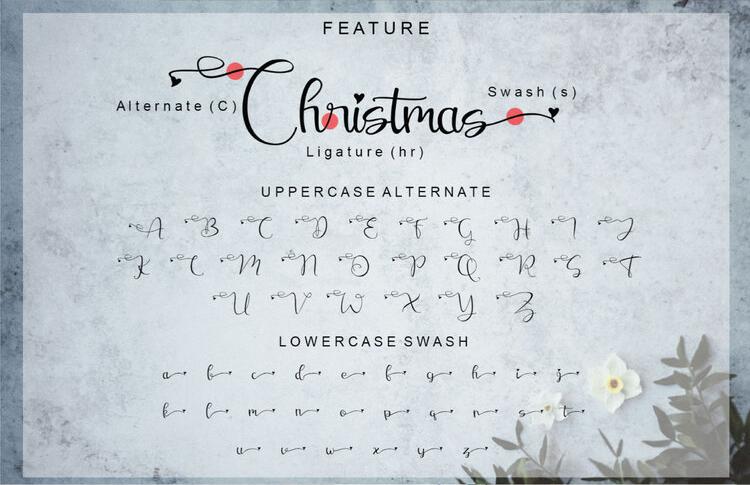 FEATURE
Alternate (C)
Christmas
Swash (s)
Ligature (hr)
UPPERCASE ALTERNATE
A B C D E F G H I J
K L M N O P Q R S T
U V W X Y Z
LOWERCASE SWASH
a b c d e f g h i j
k l m n o p q n s t
u v w x y z